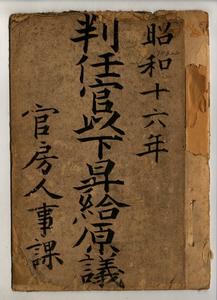 昭和十六年
判任官以下昇給原議
官房人事課